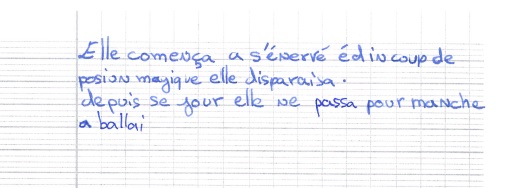 Elle comença a s'énervé éd'in coup de
posion magique elle disparaisa.
depuis se jour elle ne passa pour manche
a ballai